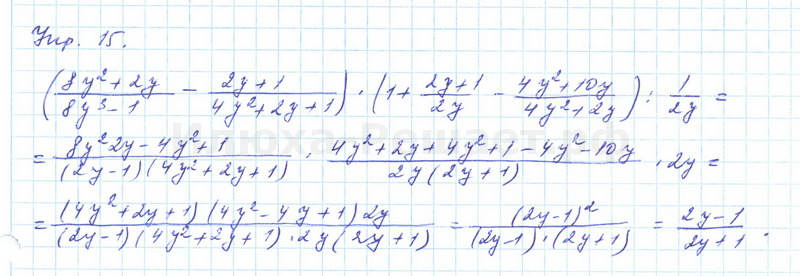 Упр. 15.
((8y²+2y)/(8y³-1) - (2y+1)/(4y²+2y+1)) · (1 + (2y+1)/(2y) - (4y²+10y)/(4y²+2y)) : 1/(2y) =
= (8y²2y-4y²+1)/((2y-1)(4y²+2y+1)) · (4y²+2y+4y²+1-4y²-10y)/(2y(2y+1)) · 2y =
= ((4y²+2y+1)(4y²-4y+1)2y)/((2y-1)(4y²+2y+1)·2y(2y+1)) = (2y-1)²/((2y-1)·(2y+1)) = (2y-1)/(2y+1).